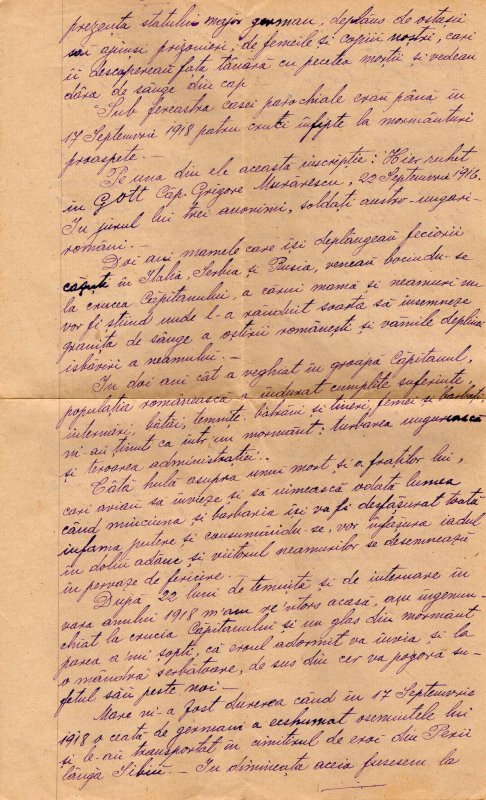 prezența statului major german, deplâns de ostașii
săi apuși prizonieri, de femeile și copiii noștri, cari
îi descopereau fața tânără cu pecetea morții și vedeau
dâra de sânge din cap.
Sub fereastra casei parochiale erau până în
17 Septemvrie 1918 patru cruci înfipte la mormânturi
proaspete. —
Pe una din ele această inscripție: Hier ruhet
in Gott Căp. Grigore Murărescu, 22 Septemvrie 1916.
In jurul lui trei anonimi, soldați austro-ungari-
români. —
Doi ani, mamele care își deplângeau feciorii
căzuți în Italia, Serbia și Rusia, veneau bocindu-se
la crucea Căpitanului, a cărui mamă și neamuri nu
vor fi știind unde l-a rânduit soarta să însemneze
granița de sânge a oștirii românești și vămile deplinei
isbăviri a neamului. —
In doi ani cât a veghiat în groapă Căpitanul,
populația românească a îndurat cumplite suferințe
internări, bătăi, temnițe, bătrâni și tineri, femei și bărbați
ni-au ținut ca într'un mormânt: turbarea ungurească
și teroarea administrației.
Câtă hulă asupra unui mort și a fraților lui,
cari aveau să învieze și să uimească odată lumea
când minciuna și barbaria își va fi desfășurat toată
infama putere și consumându-se, vor înfășura iadul
în doliu adânc și viitorul neamurilor se desemnează
în pervaze de fericire.
După 22 luni de temniță și de internare în
vara anului 1918 m'am re'ntors acasă, am îngenun-
chiat la crucia Căpitanului și un glas din mormânt
părea a'mi șopti, că eroul adormit va învia și la
o mândră serbătoare, de sus din cer va pogorâ su-
fletul său peste noi —
Mare ni-a fost durerea când în 17 Septemvrie
1918 o ceată de germani a eshumat osemintele lui
și le-au transportat în cimitirul de eroi din
lângă Sibiu. — In dimineața aceia fusesem la